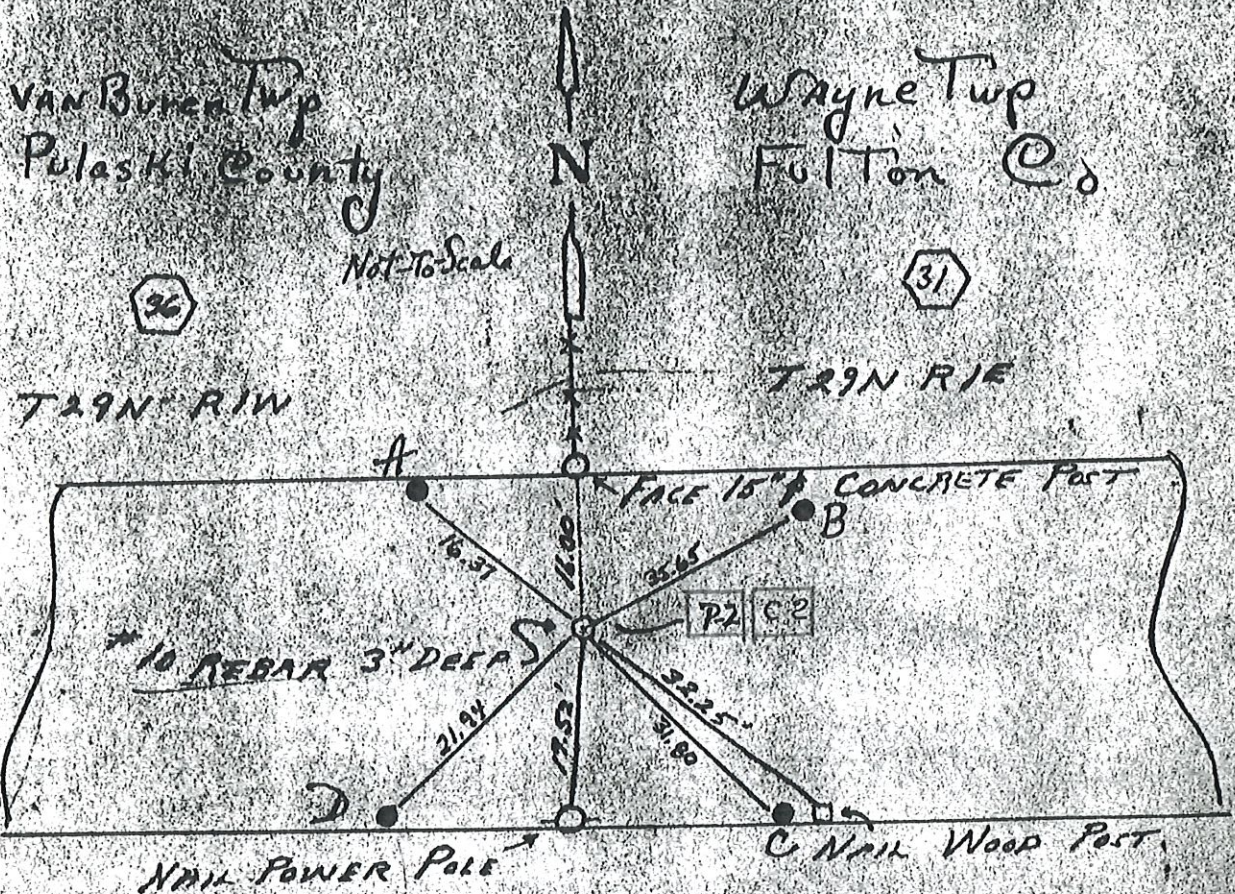 VAN Buren Twp
Pulaski County
N
Wayne Twp
Fulton Co
Not-To-Scale
36
31
T29N R1W
T29N R1E
A
FACE 15"⌀ CONCRETE POST
B
16.37
16.00'
35.65
P2 C2
#10 REBAR 3" DEEP
21.94
17.52'
31.80
32.25'
D
C NAIL WOOD POST
NAIL POWER POLE